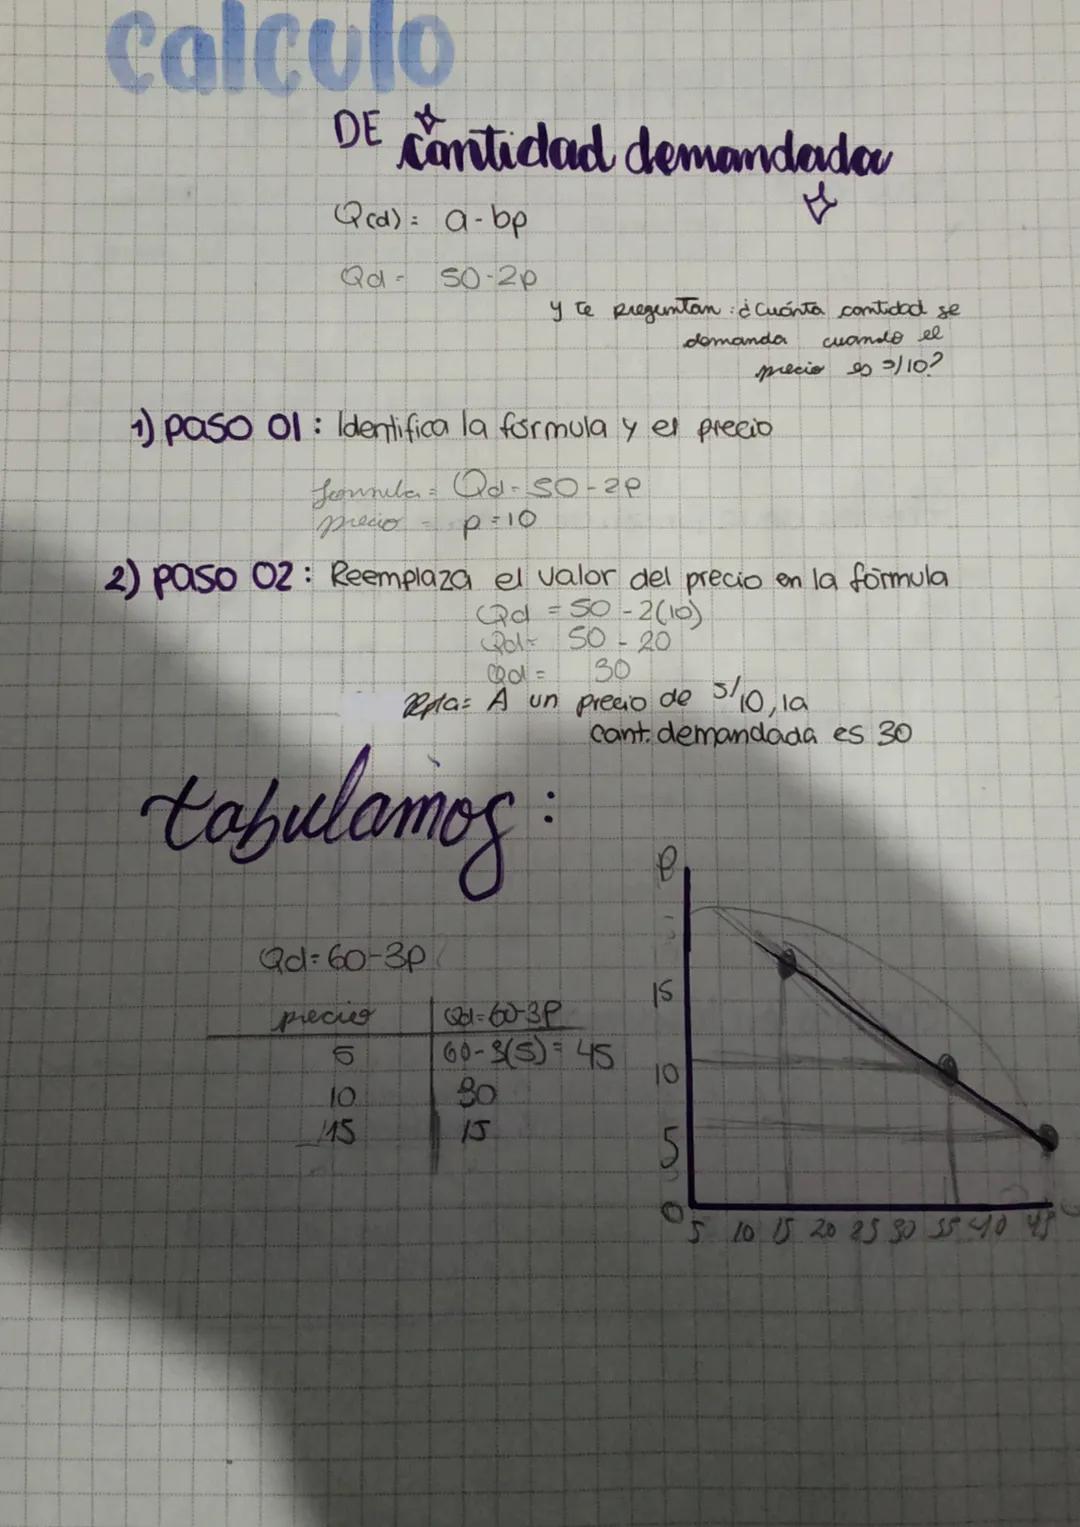 calculo
DE cantidad demandada
Q(d) = a - bp
Qd = 50-2p
y te preguntan : ¿Cuánta cantidad se
demanda cuando el
precio es s/10?
1) paso 01 : Identifica la fórmula y el precio
formula = Qd = 50-2P
precio = p = 10
2) paso 02 : Reemplaza el valor del precio en la fórmula
Qd = 50 - 2(10)
Qd = 50 - 20
Qd = 30
Rpta = A un precio de s/10, la
cant. demandada es 30
tabulamos :
P
Qd = 60-3p
precios Qd = 60-3P
5 60-3(5) = 45
10 30
15 15
15
10
5
0
5 10 15 20 25 30 35 40 45